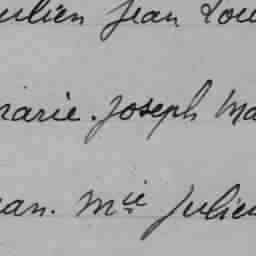 ulien Jean Lou
marie. Joseph Ma
ean. Mie Julien